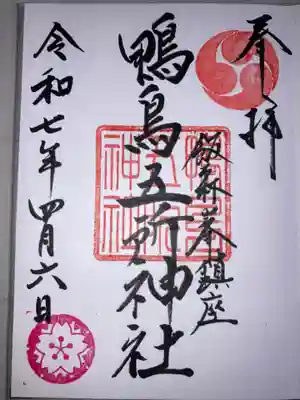 奉拝
飯森峯鎮座
鴨鳥五所神社
令和七年四月六日